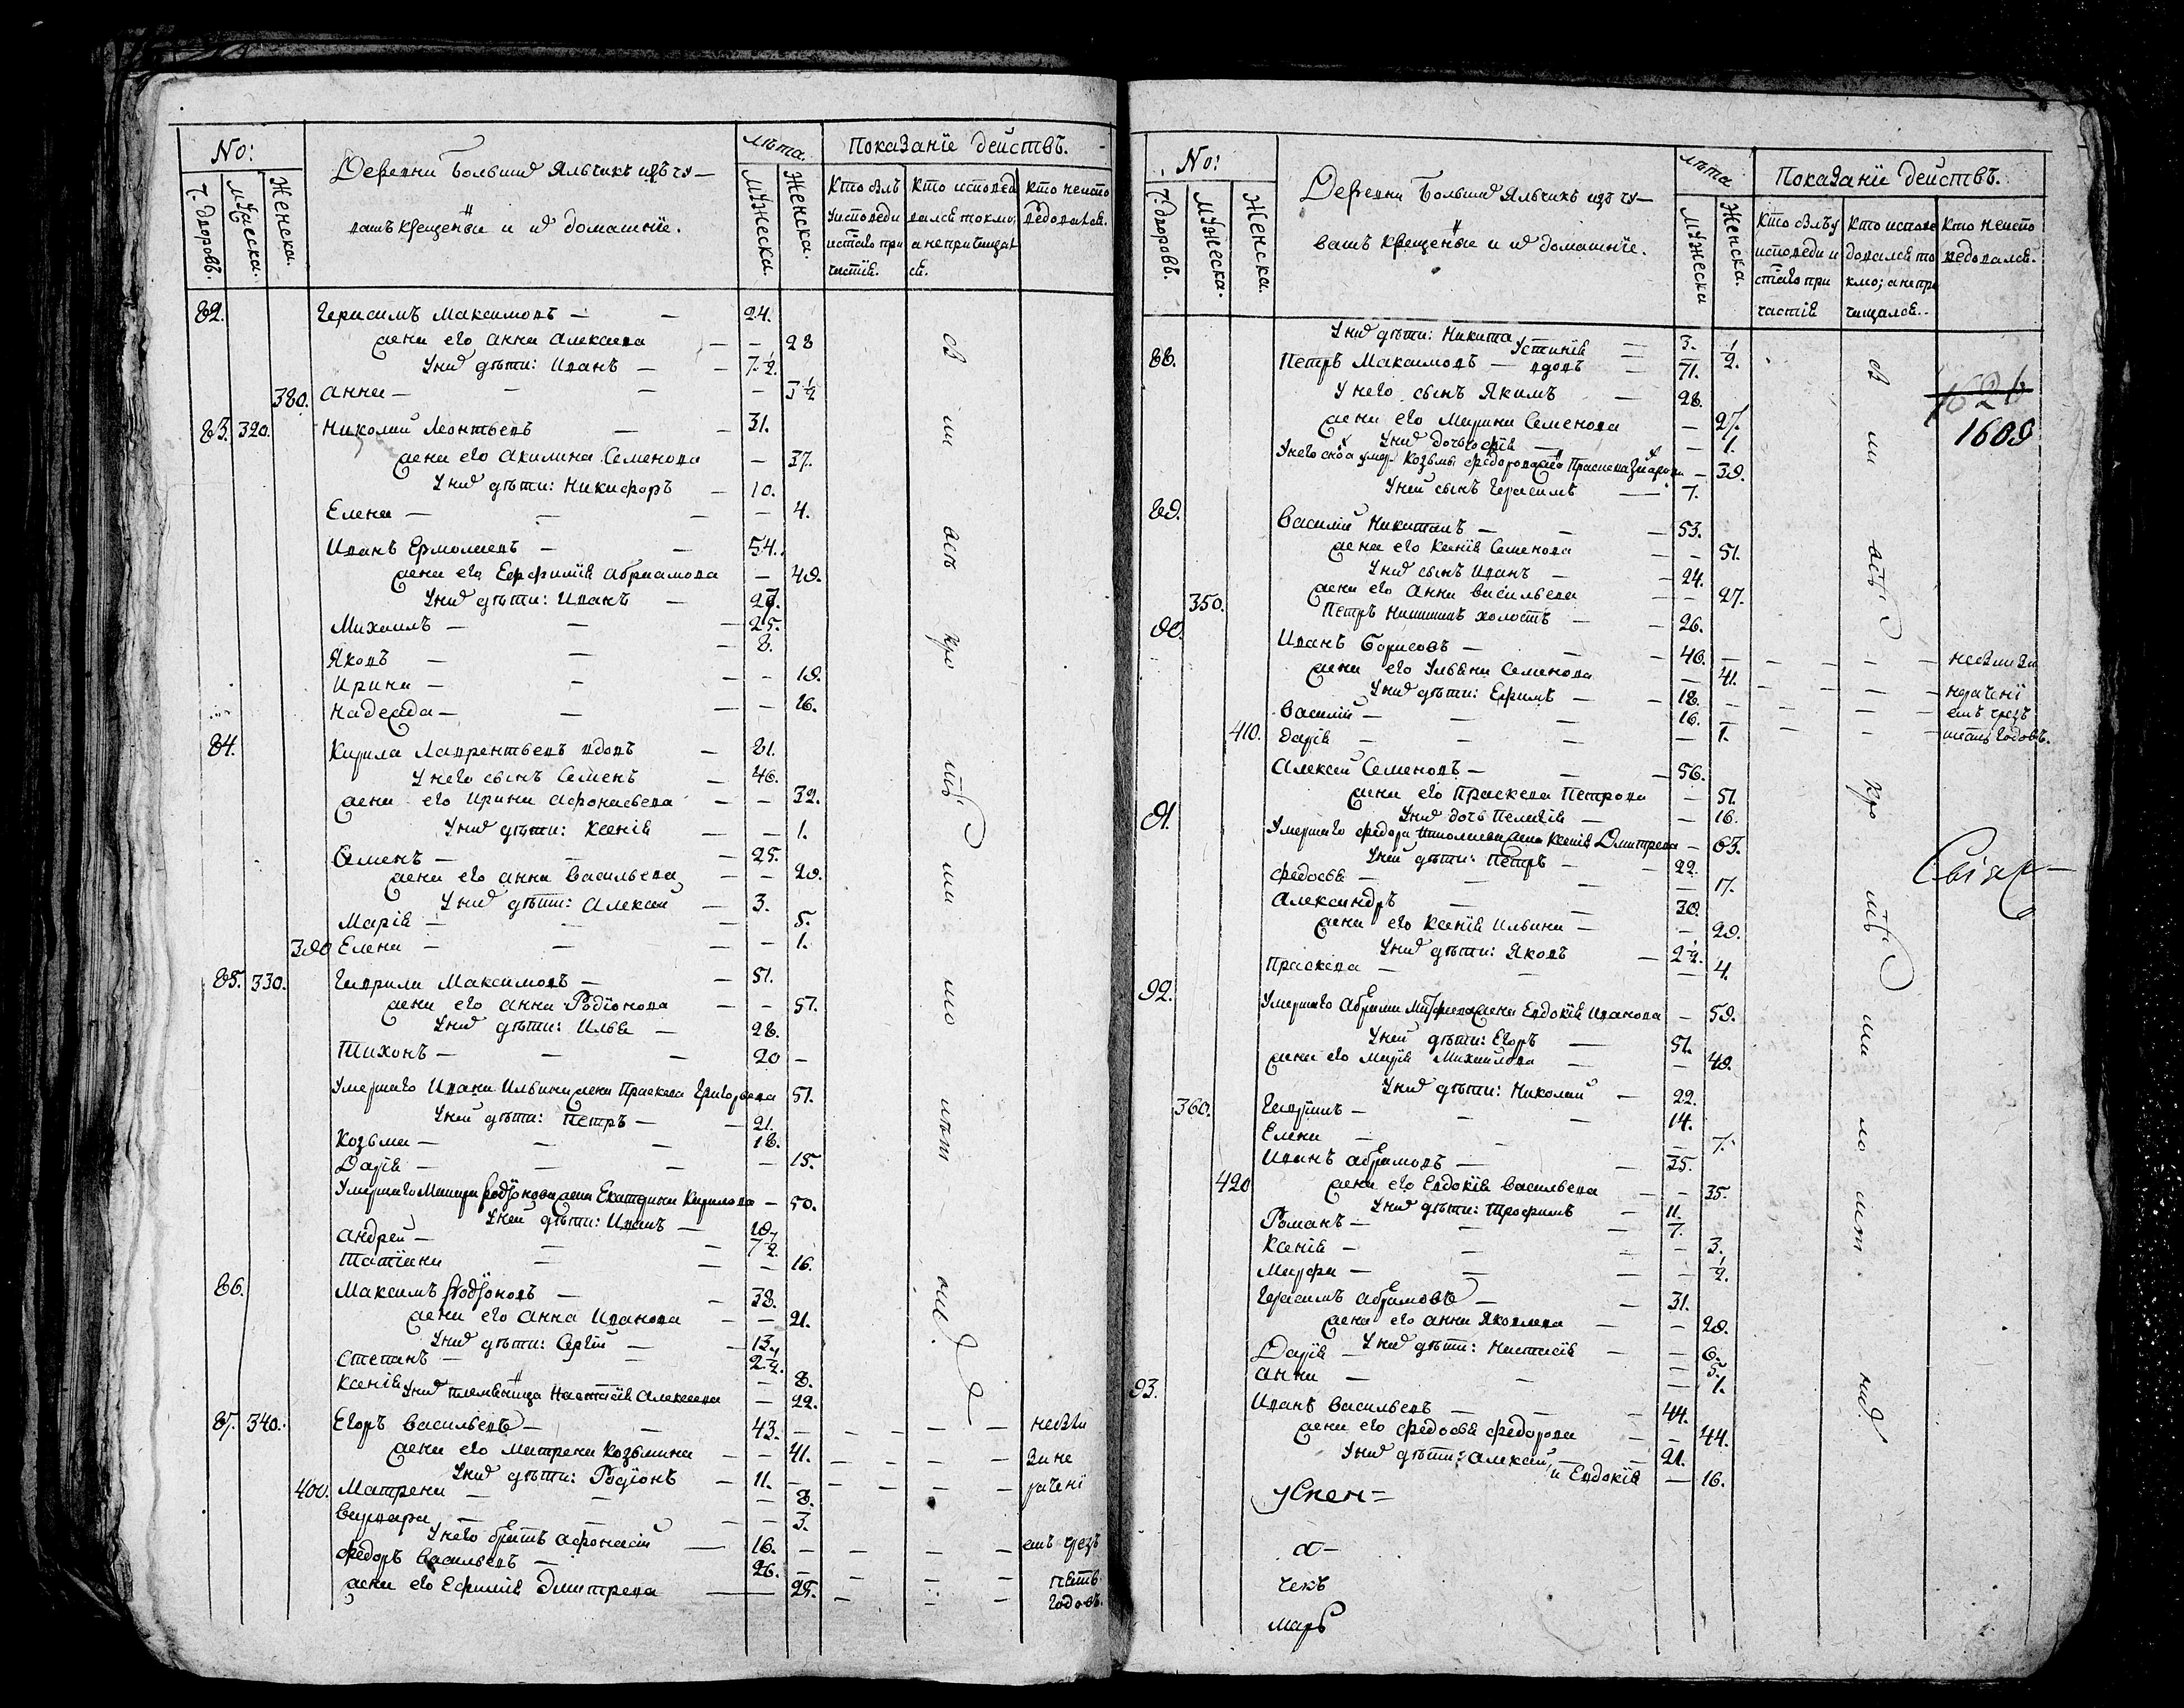 No:
Деревни Большихъ Яльчикъ изъ чу-
вашъ крещеные и их домашніе.
лѣта.
Показаніе действъ.
Ч: дворовъ.
Мужеска.
Женска.
Мужеска.
Женска.
Кто былъ у исповеди и стаго причастія.
Кто исповедался токмо, а непричищался.
Кто неисповедовался.
82. Герасимъ Максимовъ — 24.
жена его Анна Алексеева — 28
у них дѣти: Иванъ — 7½.
380. Анна — 3½
83. 320. Николай Леонтьевъ — 31.
жена его Акилина Семенова — 37.
у них дѣти: Никифоръ — 10.
Елена — 4.
Иванъ Ермолаевъ — 54.
жена его Евфимія Абрамова — 49.
у них дѣти: Иванъ — 27.
Михаилъ — 25.
Яковъ — 8.
Ирина — 19.
Надежда — 16.
84. Кирила Лаврентьевъ вдовъ — 81.
у него сынъ Семенъ — 46.
жена его Ирина Афонасьева — 32.
у них дѣти: Ксенія — 1.
Семенъ — 25.
жена его Анна Васильева — 29.
у них дѣти: Алексей — 3.
Марія — 5.
390 Елена — 1.
85. 330. Гаврила Максимовъ — 51.
жена его Анна Родіонова — 57.
у них дѣти: Илья — 28.
Тихонъ — 20 —
Умершаго Ивана Ильина жена Праскева Григорьева 51.
у ней дѣти: Петръ — 21.
Козьма — 18.
Дарія — 15.
Умершаго Родіонова жена Екатерина Кирилова — 50.
у ней дѣти: Иванъ — 19.
Андрей — 7½.
Татіана — 16.
86. Максимъ Родіоновъ — 38.
жена его Анна Иванова — 21.
у них дѣти: Сергій — 13.
Степанъ — 2½.
Ксенія — 8.
у них племянница Настасія Алексеева — 22.
87. 340. Егоръ Васильевъ — 43.
жена его Матрена Козьмина — 41.
у них дѣти: Родіонъ — 11.
400. Матрена — 8.
Варвара — 3.
у него братъ Афонасій — 16.
Федоръ Васильевъ — 26.
жена его Ефимія Дмитрева — 25.
годовъ.
No:
Деревни Большихъ Яльчикъ изъ чу-
вашъ крещеные и их домашніе.
лѣта
Показаніе действъ.
Ч: дворовъ.
Мужеска.
Женска.
Мужеска
Женска.
Кто былъ у исповеди и стаго причастія
Кто исповедовался токмо; а непричищался.
Кто неисповедовался.
у них дѣти: Никита — 3.
Устинія — ½.
88. Петръ Максимовъ — вдовъ — 71.
у него сынъ Якимъ — 28.
жена его Марина Семенова — 27.
у них дочь — 1.
39.
у ней сынъ Герасимъ — 7.
1609
89. Василій Никитинъ — 53.
жена его Ксенія Семенова — 51.
у них сынъ Иванъ — 24.
жена его Анна Васильева — 27.
350. Петръ холостъ — 26.
90. Иванъ Борисовъ — 46.
жена его Ульяна Семенова — 41.
у них дѣти: Ефимъ — 18.
Василій — 16.
410. Дарія — 1.
годовъ.
Алексей Семеновъ — 56.
жена его Праскева Петрова — 51.
у них дочь Пелагія — 16.
91. Умершаго Федора жена Ксенія Дмитрева — 63.
у ней дѣти: Петръ — 22.
Федосья — 17.
Александръ — 30.
жена его Ксенія Ильина — 29.
у них дѣти: Яковъ — 2½.
Праскева — 4.
92. Умершаго Абрама жена Евдокія Иванова — 59.
у ней дѣти: Егоръ — 51.
жена его Марія Михайлова — 49.
у них дѣти: Николай — 22.
360. Гаврилъ — 14.
Елена — 7.
Иванъ Абрамовъ — 35.
420 жена его Евдокія Васильева — 35.
у них дѣти: Трофимъ — 11.
Романъ — 7.
Ксенія — 3.
Марфа — ½.
Герасимъ Абрамовъ — 31.
жена его Анна Яковлева — 29.
у них дѣти: Настасія — 6.
Дарія — 5.
Анна — 1.
93. Иванъ Васильевъ — 44.
жена его Федосья Федорова — 44.
у них дѣти: Алексей — 21.
и Евдокія — 16.
успен-